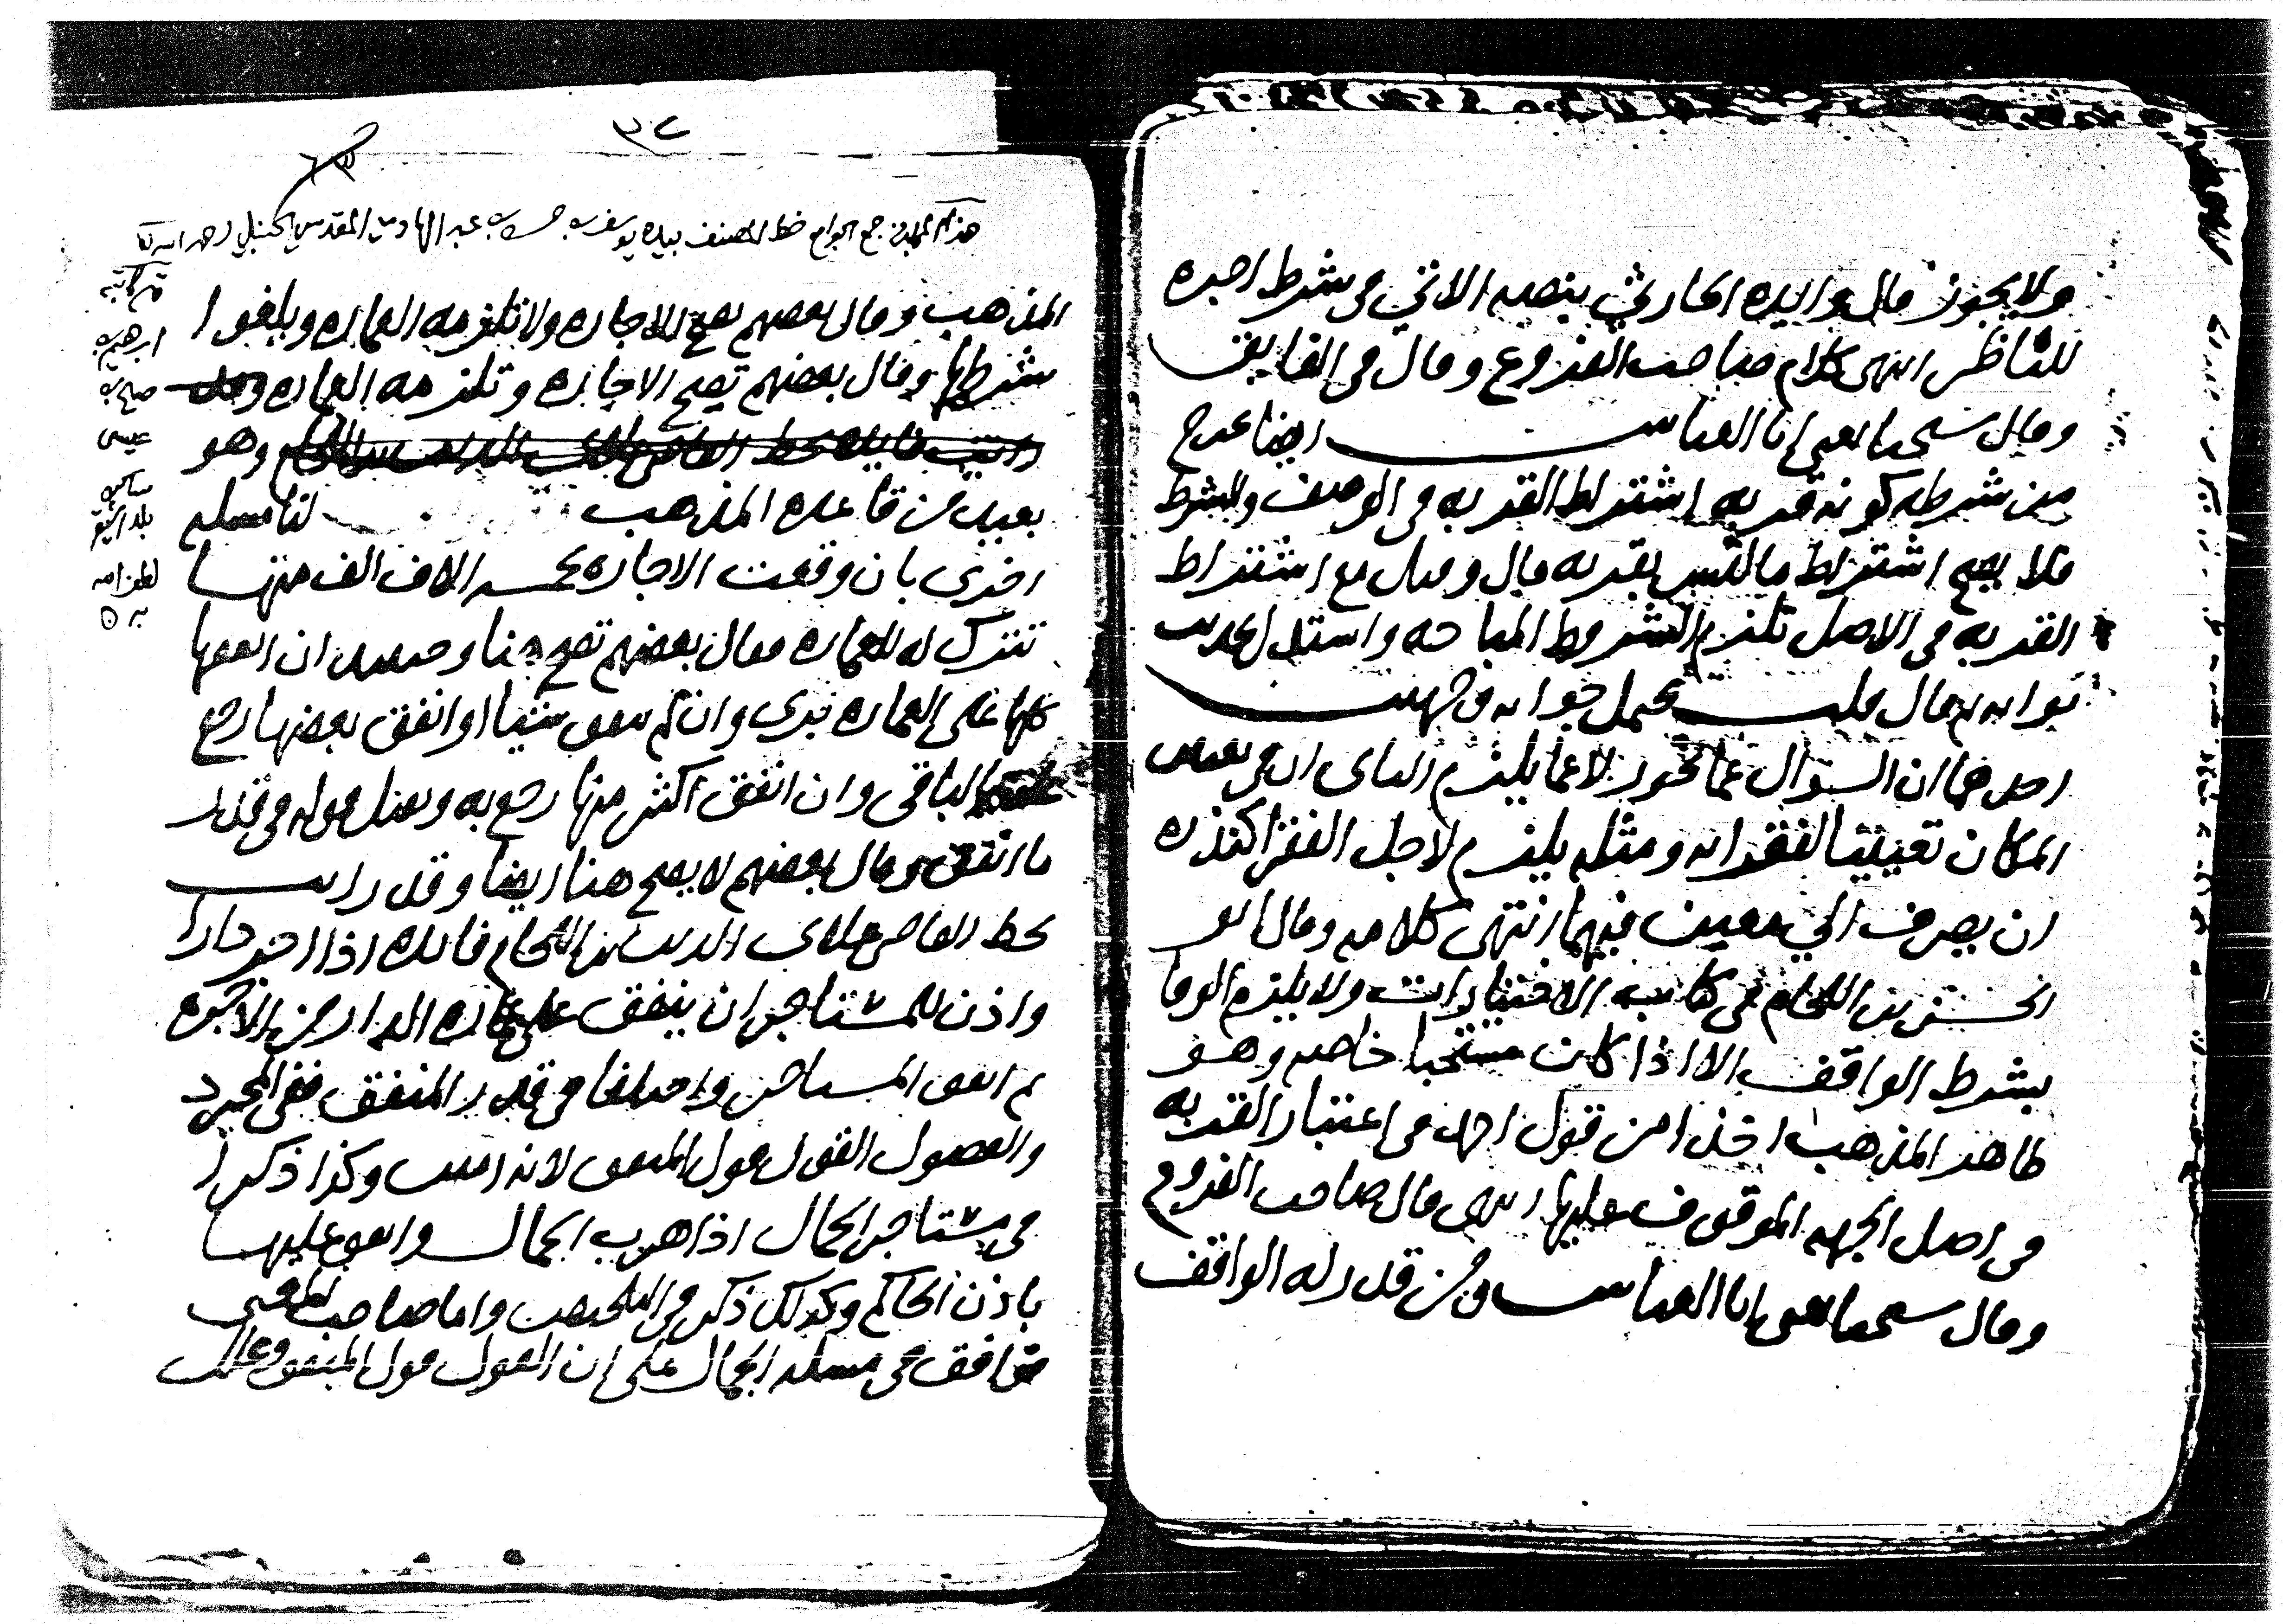 ولا يجوز قال وايده الحارثي بنصه الاتي في شرط اجره
للناظر انتهى كلام صاحب الفروع وقال في الفايق
وقال شيخنا يعني ابا العباس ايضا
من شرطه كونه قربه اشتراط القربه في الوصف والشرط
فلا يصح اشتراط ما ليس بقربه قال وقيل مع اشتراط
القربه في الاصل تلزم الشروط المباحه واستدل
ثم قال قلت يحتمل جوابه وجهين
احدهما ان السؤال عما يجوز لا عما يلزم الثاني ان في بعض
المكان تعيينا لفقرايه ومثله يلزم لاجل الفقرا كنذره
ان يصرف الي معين فيهما انتهى كلامه وقال ابو
الحسن بن اللحام في كتابه الاختيارات ولا يلزم الوفا
بشرط الواقف الا اذا كان مستحبا خاصه وهو
ظاهر المذهب اخذا من قول احمد في اعتبار القربه
في اصل الجهه الموقوف عليها انتهى قال صاحب الفروع
وقال شيخنا يعني ابا العباس ومن قدر له الواقف
٣٢
هذا جمع الجوامع خط المصنف بيده يوسف بن حسن بن عبد الهادي المقدسي الحنبلي رحمه الله
ابرهيم بن
صالح بن
عيسى
المذهب وقال بعضهم تصح الاجاره ولا تلزمه العماره ويلغوا
شرطها وقال بعضهم تصح الاجاره وتلزمه العماره
وهو
بعيد من قاعده المذهب لنا مسله
اخرى بان وقعت الاجاره بخمسه الاف الف منها
تترك له للعماره فقال بعضهم تصح هنا وحينئذ ان انفقها
كلها على العماره بري وان لم ينفق شيا او انفق بعضها رجع
الباقي وان انفق اكثر منها رجع به ويقبل قوله في قدر
ما انفق وقال بعضهم لا يصح هنا ايضا وقد رايت
بخط القاضي علاي الدين بن اللحام فايده اذا اجر دارا
واذن للمستاجر ان ينفق على عماره الدار من الاجره
ثم انفق المستاجر واختلفا في قدر المنفق ففي المجرد
والفصول القول قول المنفق لانه امين وكذا ذكرا
في مستاجر الجمال اذا هرب الجمال وانفق عليها
باذن الحاكم وكذلك ذكر في التلخيص واما صاحب المغني
فوافق في مسله الجمال على ان القول قول المنفق وعلل